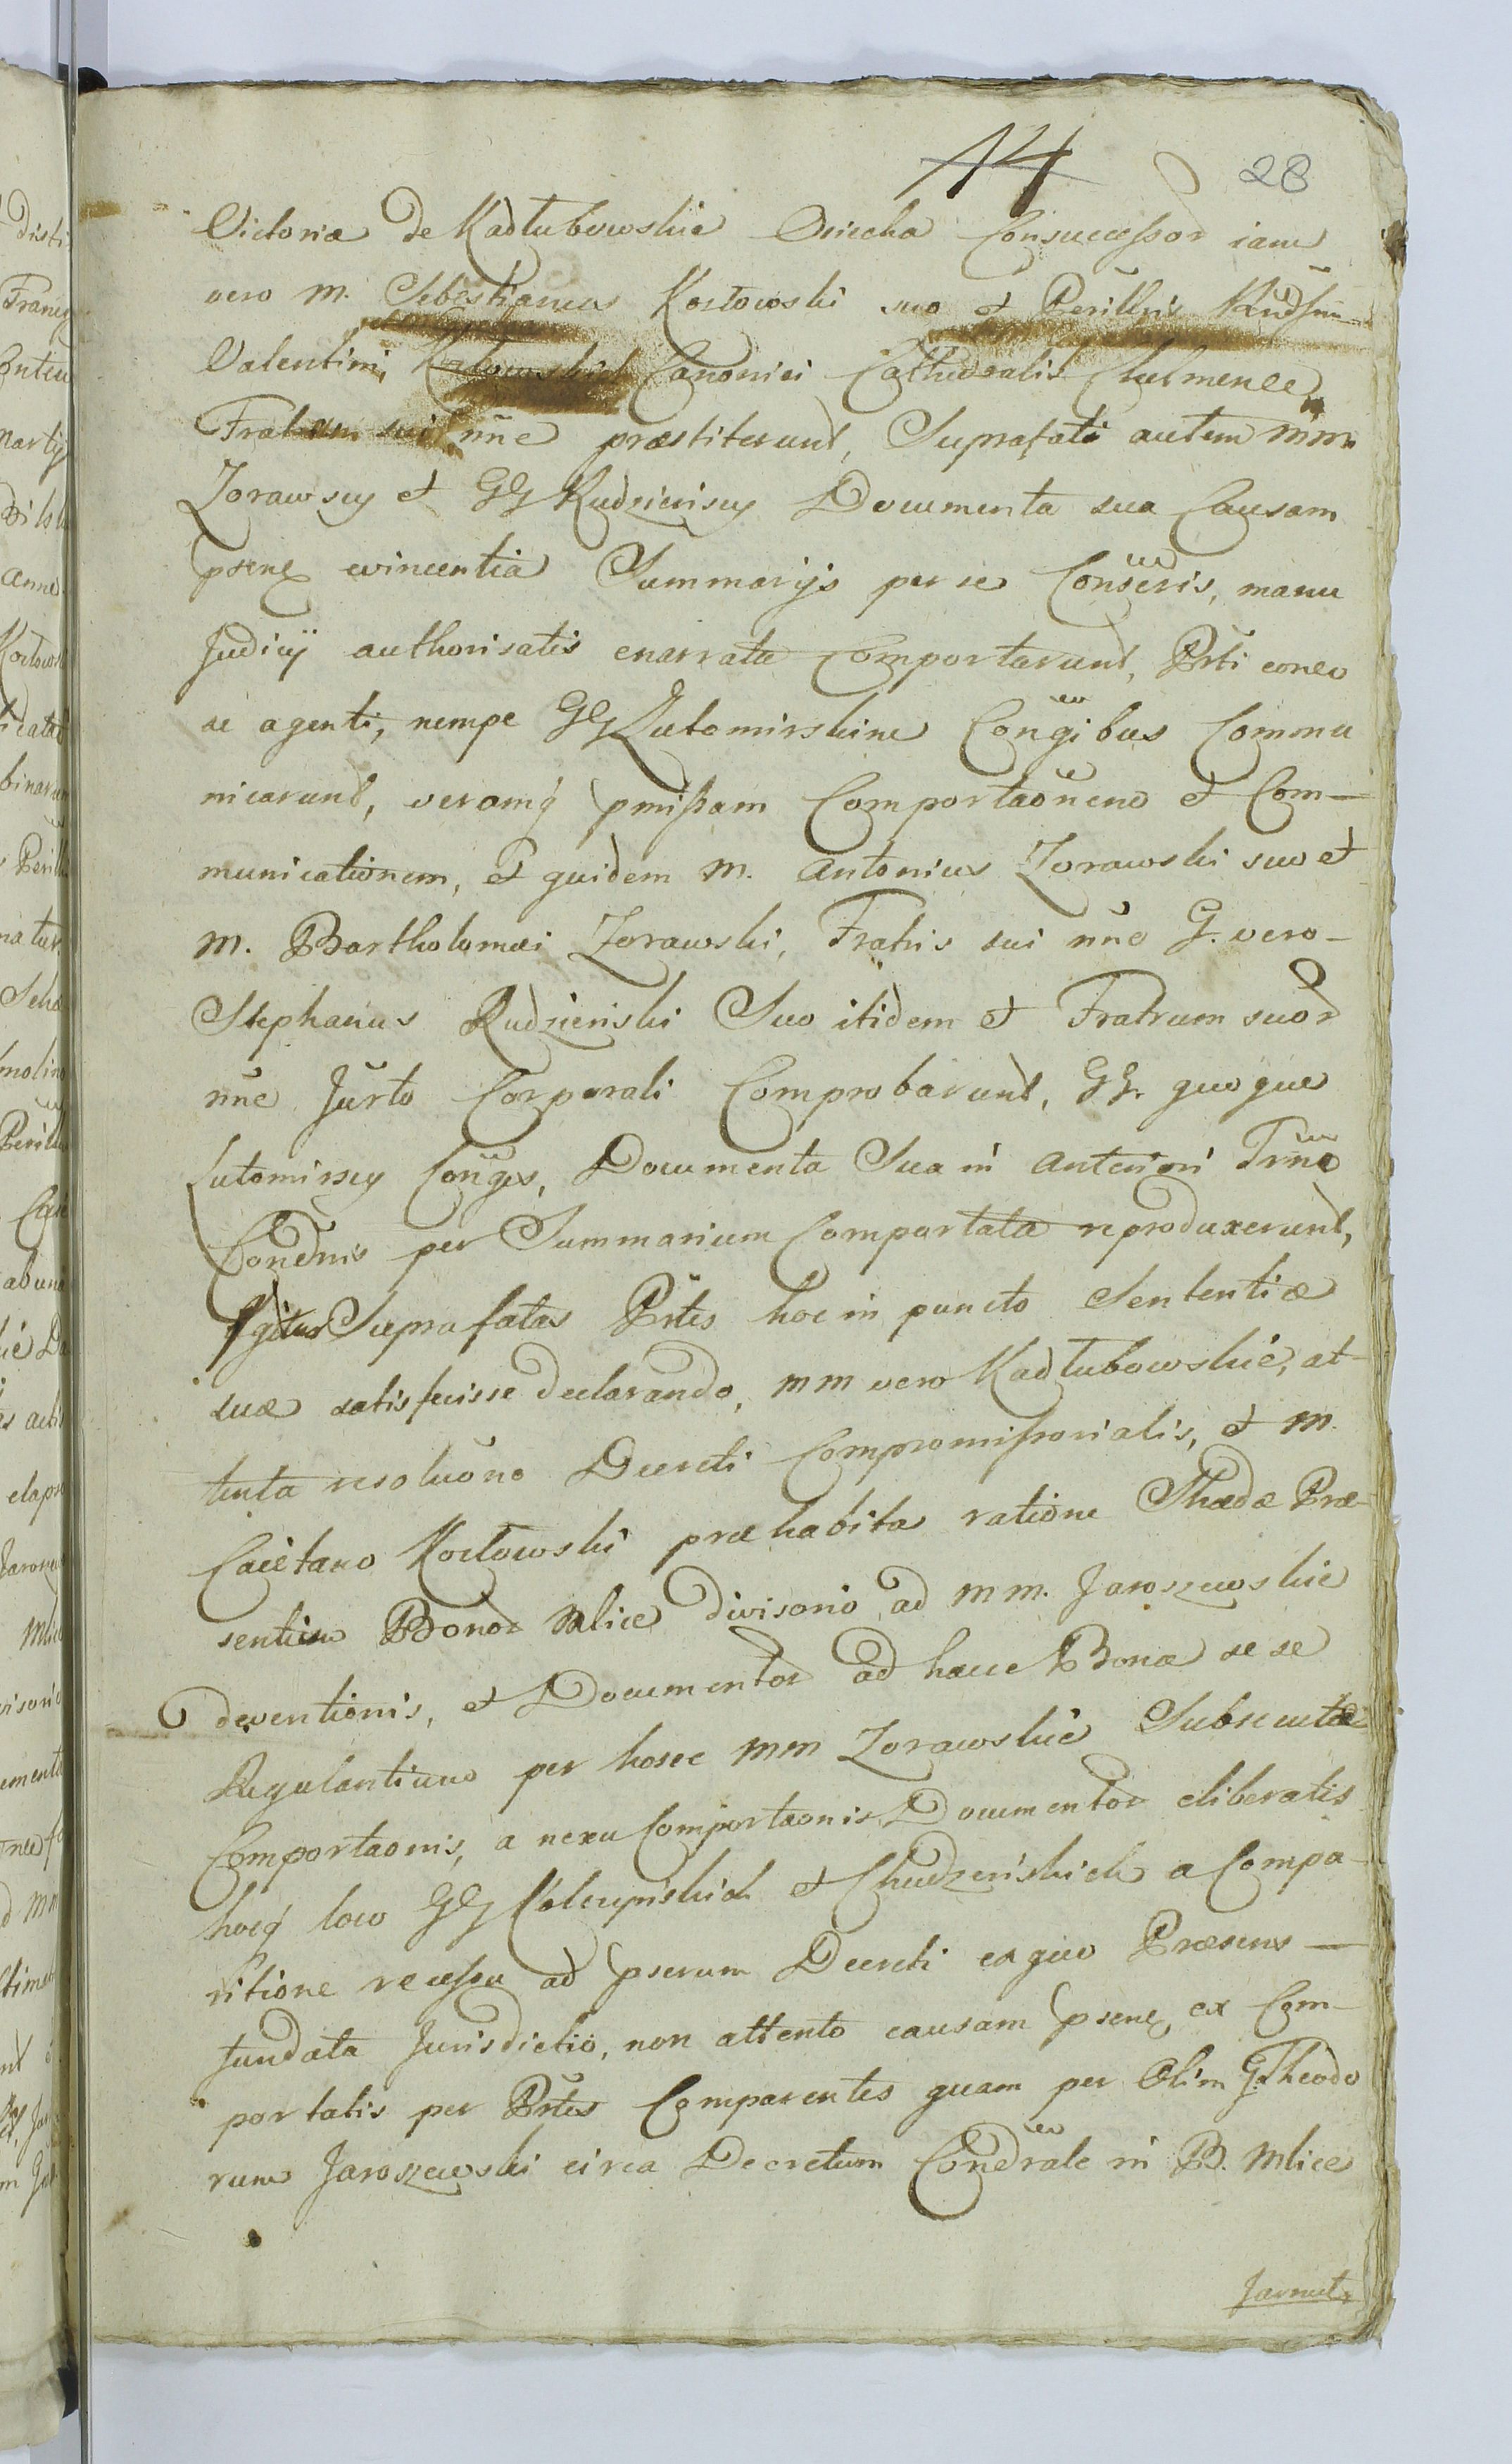 14 28
Victoria de Kadłubowskie Osiecka Consuccessor iam
vero M. Sebestianus Kozłowski suo et Perillris Rndssm
Valentini Canonici Cathedralis Chelmen
Fratrum sui nñe præstiterunt, Suprafati autem MM
Zorawscy et GG Rudzienscy Documenta sua Causam
psenē evincentia Summarijs per se Conscris, manu
Judicij authorisatis enarrata Comportarunt, Prti coneo
se agenti, nempe GG Lutomirskim Congibus Commu
nicarunt, veramq pmissam Comportaoñem et Com—
municationem, et quidem M. Antonius Zorawski suo et
M. Bartholomæi Zorawski, Fratris sui nñe G. vero—
Stephanus Rudzienski Suo itidem et Fratrum suor
nñe Jurto Corporali Comprobarunt, GG. quoque
Lutomirscy Conges, Documenta Sua in anteriori Trño
Condñis per Summarium Comportata reproduxerunt,
Igitur Suprafatas Prtes hoc in puncto Sententiæ
suæ satisfecisse declarando, MM vero Kadłubowskie, at-
tenta resoluõne Decreti Compromissorialis, et M.
Caietano Kozłowski præhabita ratione Shedæ Præ-
sentium Bonor Mlice divisorio ad MM. Jaroszewskie
deventionis, et Documentor ad hæcce Bona se se
Regulantium per hosce MM Zorawskie Subsecutæ
Comportaonis, a nexu Comportaonis Documentor eliberatis
hocq loco GG et Chudzenskich a Compa-
ritione recessu ad pserum Decreti ex quo Præsens—
fundata Jurisdictio, non attento causam psenē ex Com—
portatis per Prtes Comparentes quam per Olim G. Theodo
rum Jaroszewski circa Decretum Condrale in B. Mlice